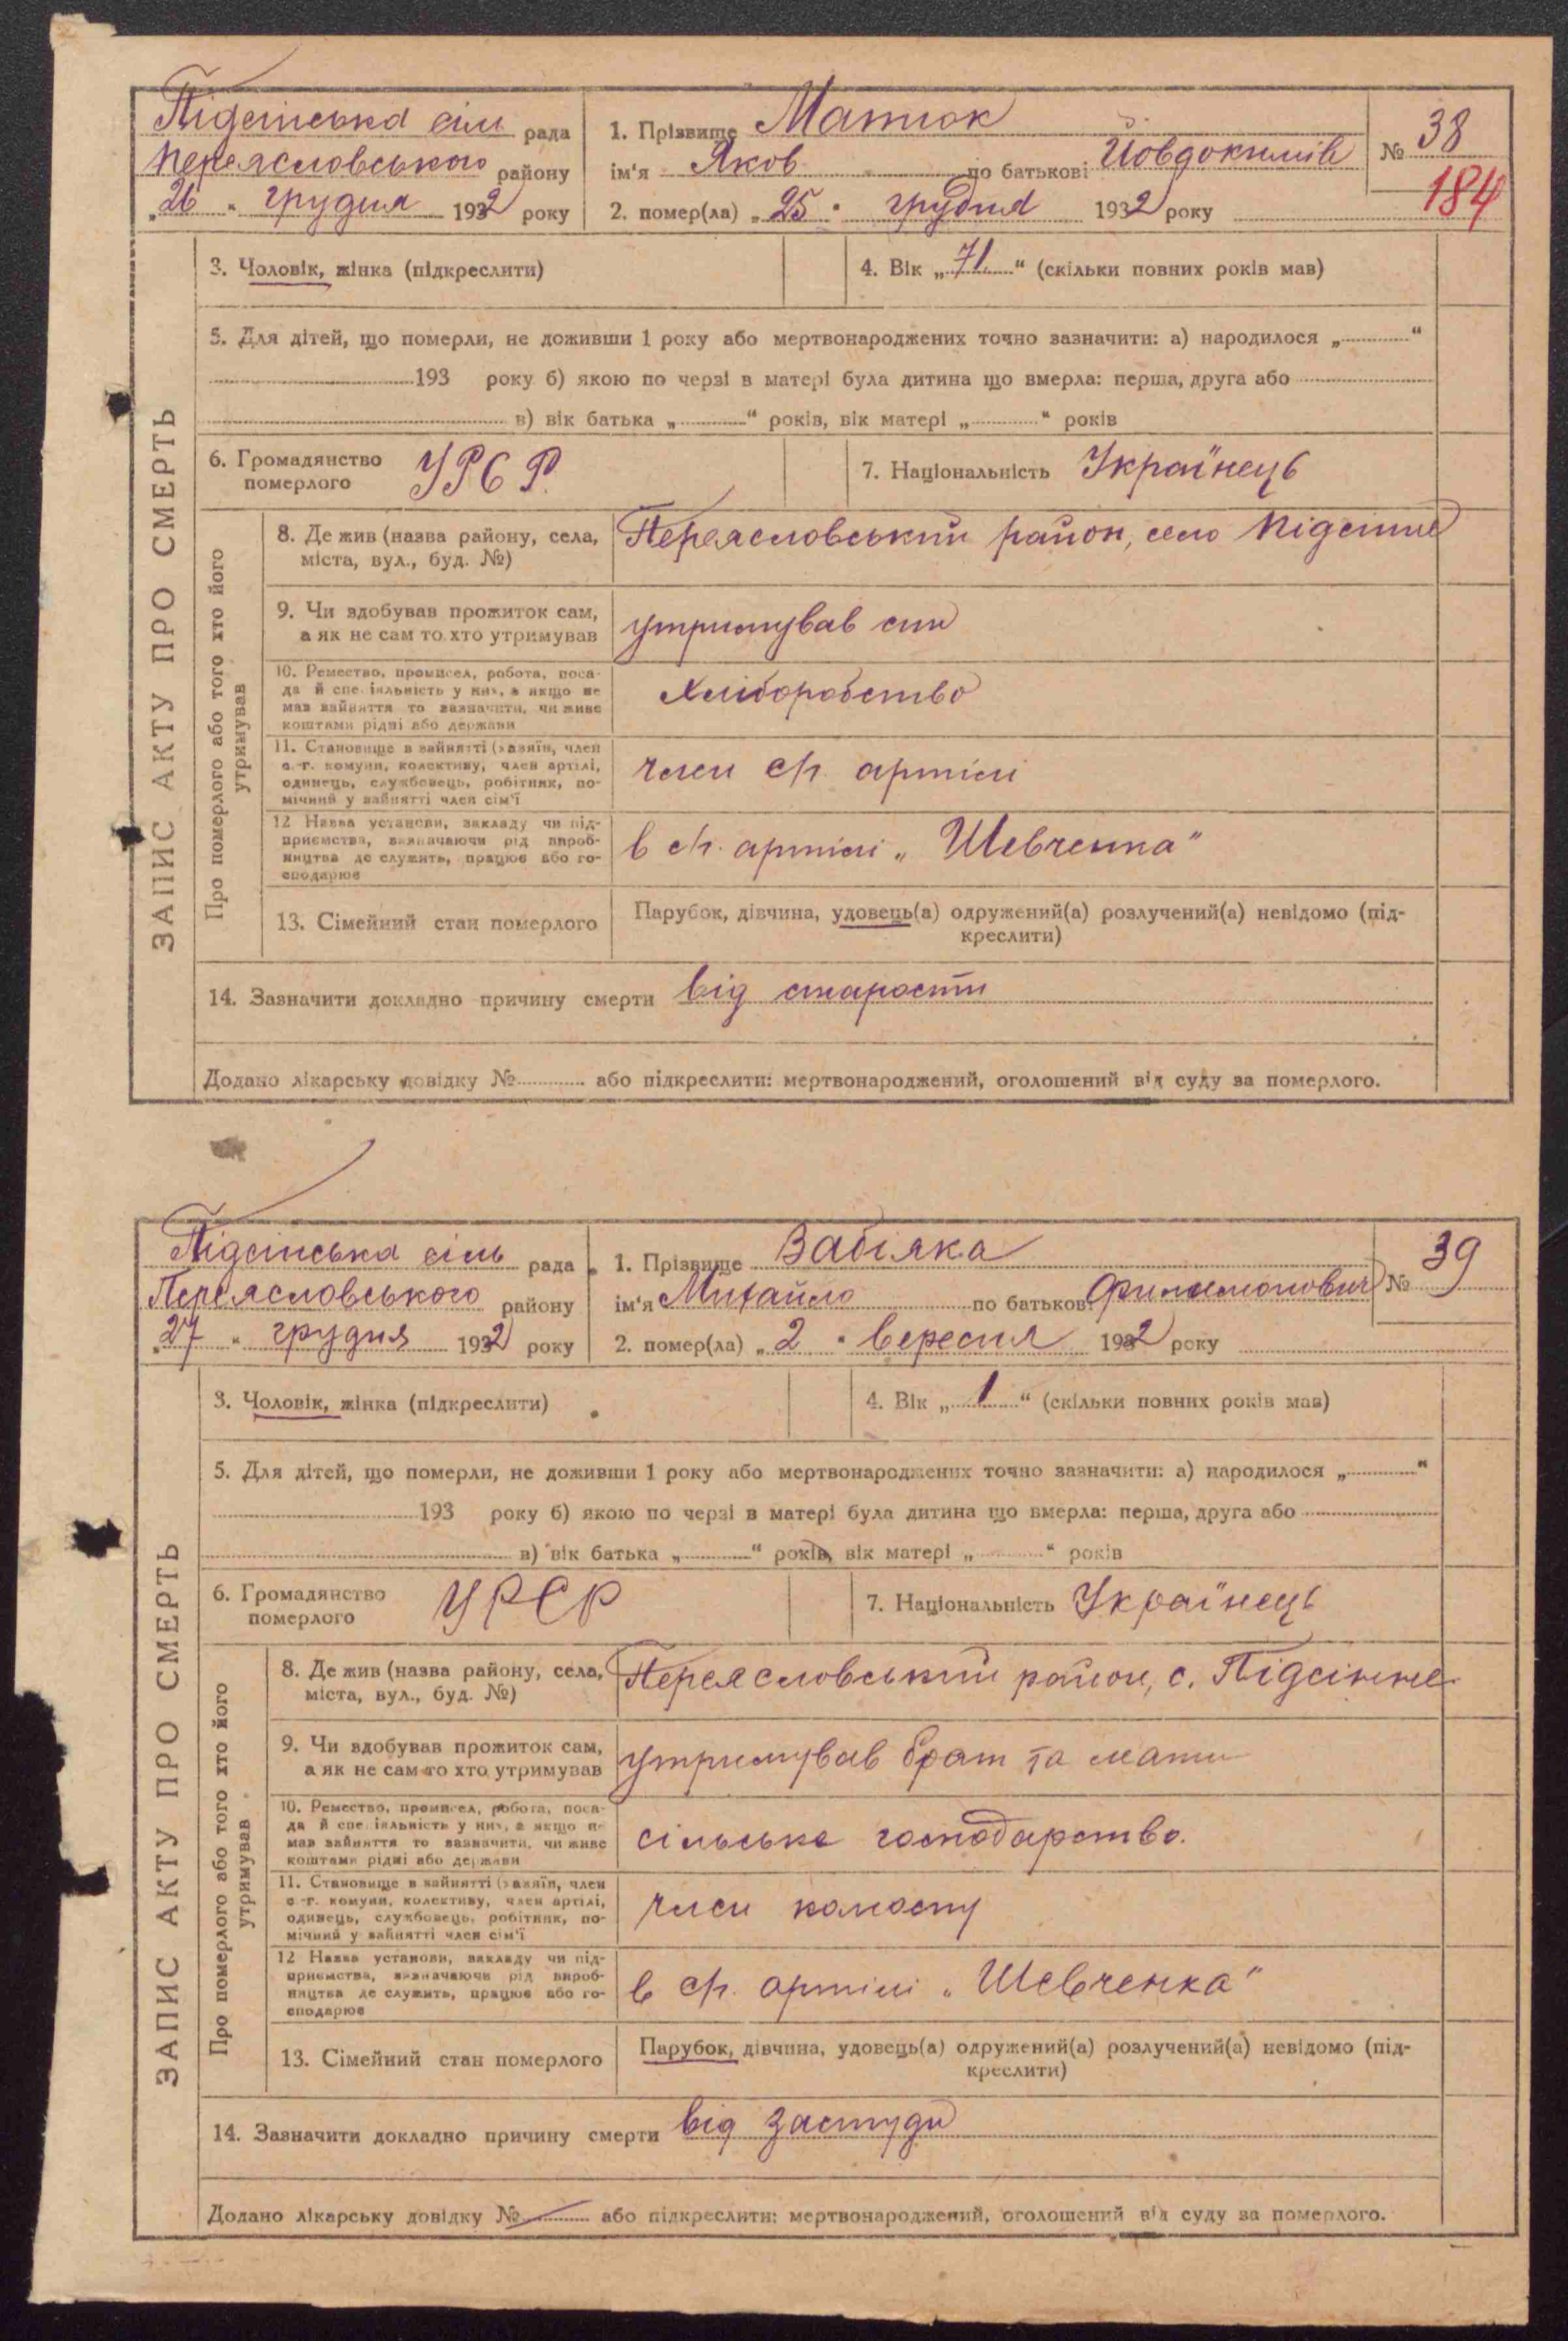 Підсінська сіль рада
Переясловського району
„26" грудня 1932 року
1. Прізвище Матюк
ім'я Яков по батькові Йовдокимів
2. помер(ла) „25" грудня 1932 року
№ 38
184
ЗАПИС АКТУ ПРО СМЕРТЬ
3. Чоловік, жінка (підкреслити)
4. Вік „71" (скільки повних років мав)
5. Для дітей, що померли, не доживши 1 року або мертвонароджених точно зазначити: а) народилося „ "
193 року б) якою по черзі в матері була дитина що вмерла: перша, друга або
в) вік батька „ " років, вік матері „ " років
6. Громадянство
померлого
УРСР
7. Національність Українець
Про померлого або того хто його
утримував
8. Де жив (назва району, села,
міста, вул., буд. №)
Переясловський район, село Підсінне
9. Чи здобував прожиток сам,
а як не сам то хто утримував
утримував син
10. Ремество, промисел, робота, поса-
да й спеціяльність у них, а якщо не
мав зайняття то зазначити, чи живе
коштами рідні або держави
Хліборобство
11. Становище в зайнятті (хазяїн, член
с.-г. комуни, колективу, член артілі,
одинець, службовець, робітник, по-
мічний у зайнятті член сім'ї
член с/г. артілі
12 Назва установи, закладу чи під-
приємства, зазначаючи рід вироб-
ництва де служить, працює або го-
сподарює
в с/г. артілі „Шевченка"
13. Сімейний стан померлого
Парубок, дівчина, удовець(а) одружений(а) розлучений(а) невідомо (під-
креслити)
14. Зазначити докладно причину смерти від старости
Додано лікарську довідку № або підкреслити: мертвонароджений, оголошений від суду за померлого.
Підсінська сіль рада
Переясловського району
„27" грудня 1932 року
1. Прізвище Забіяка
ім'я Михайло по батькові Филимонович
2. помер(ла) „2" вересня 1932 року
№ 39
ЗАПИС АКТУ ПРО СМЕРТЬ
3. Чоловік, жінка (підкреслити)
4. Вік „1" (скільки повних років мав)
5. Для дітей, що померли, не доживши 1 року або мертвонароджених точно зазначити: а) народилося „ "
193 року б) якою по черзі в матері була дитина що вмерла: перша, друга або
в) вік батька „ " років, вік матері „ " років
6. Громадянство
померлого
УРСР
7. Національність Українець
Про померлого або того хто його
утримував
8. Де жив (назва району, села,
міста, вул., буд. №)
Переясловський район, с. Підсінне
9. Чи здобував прожиток сам,
а як не сам то хто утримував
утримував брат та мати
10. Ремество, промисел, робота, поса-
да й спеціяльність у них, а якщо не
мав зайняття то зазначити, чи живе
коштами рідні або держави
сільське господарство.
11. Становище в зайнятті (хазяїн, член
с.-г. комуни, колективу, член артілі,
одинець, службовець, робітник, по-
мічний у зайнятті член сім'ї
член колоспу
12 Назва установи, закладу чи під-
приємства, зазначаючи рід вироб-
ництва де служить, працює або го-
сподарює
в с/г. артілі „Шевченка"
13. Сімейний стан померлого
Парубок, дівчина, удовець(а) одружений(а) розлучений(а) невідомо (під-
креслити)
14. Зазначити докладно причину смерти від застуди
Додано лікарську довідку № або підкреслити: мертвонароджений, оголошений від суду за померлого.